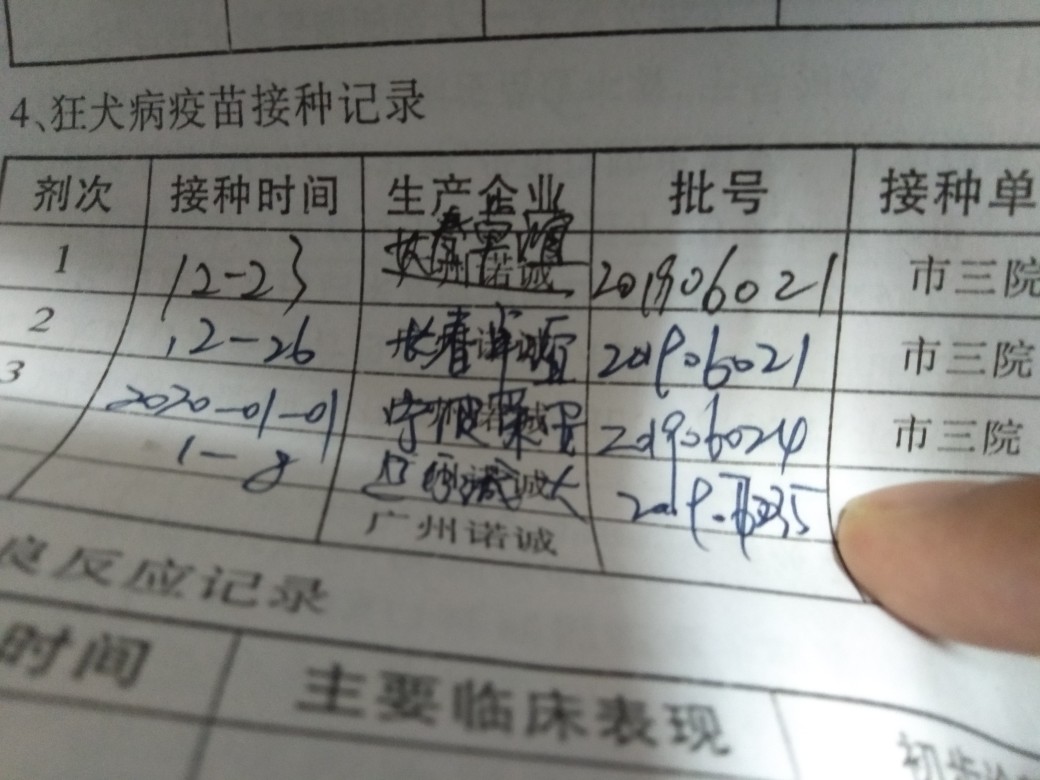 4、狂犬病疫苗接种记录
剂次 接种时间 生产企业 批号 接种单
1 12-23 长春卓谊 201906021 市三院
2 12-26 长春卓谊 201906021 市三院
3 2020-01-01 201906024 市三院
1-8
广州诺诚
良反应记录
时间 主要临床表现 初步